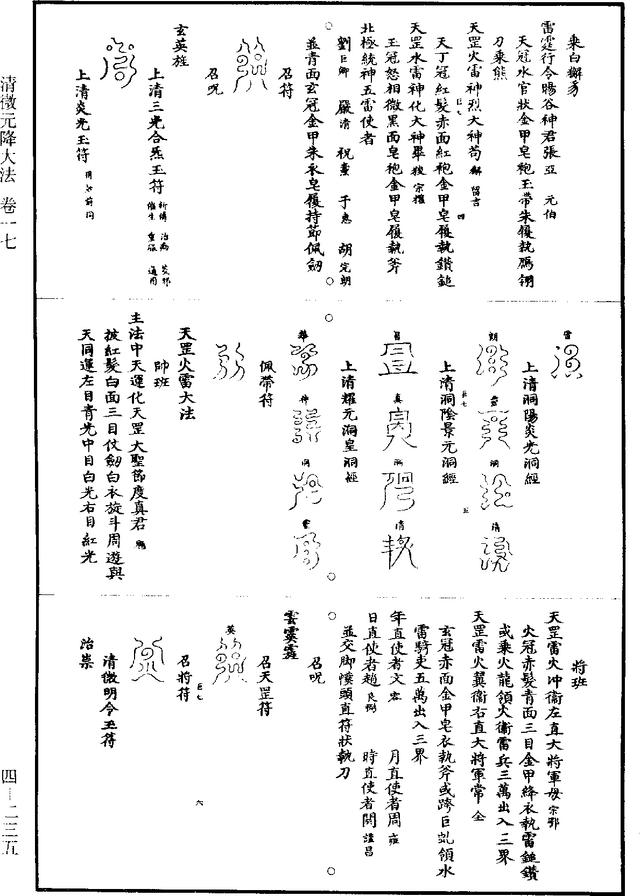 清微元降大法 卷一七
四—二三五
乘白獬豸
雷霆行令暘谷神君張亞 元伯
天冠水官狀金甲皂袍玉帶朱履執鴈翎
刀乘熊
天罡火雷神烈大神苟 留吉
天丁冠紅髮赤面紅袍金甲皂履執鑽鎚
天罡水雷神化大神畢 宗權
玉冠怒相微黑面皂袍金甲皂履執斧
北極統神五雷使者
劉巨卿 嚴清 祝熏 于惠 胡完朗
並青面玄冠金甲朱衣皂履持節佩劒
召符
召呪
玄英旌
上清三光合炁玉符
上清炎光玉符 用如前同
雷
上清洞陽炎光洞經
朗
洞
清
上清洞陰景元洞經
真
清
上清耀元洞皇洞經
神
洞
佩帶符
天罡火雷大法
帥班
主法中天運化天罡大聖節度真君
披紅髮白面三目仗劒白衣旋斗周遊與
天同運左目青光中目白光右目紅光
將班
天罡雷火冲衞左直大將軍毋宗邪
火冠赤髮青面三目金甲絳衣執雷鎚鑽
或乘火龍領火衞雷兵三萬出入三界
天罡雷火翼衞右直大將軍常全
玄冠赤面金甲皂衣執斧或跨巨虬領水
雷騎吏五萬出入三界
年直使者文 月直使者周
日直使者趙 時直使者關
並交脚幞頭直符狀執刀
召呪
雲霙霆
召天罡符
英
召將符
清微明令玉符
治祟